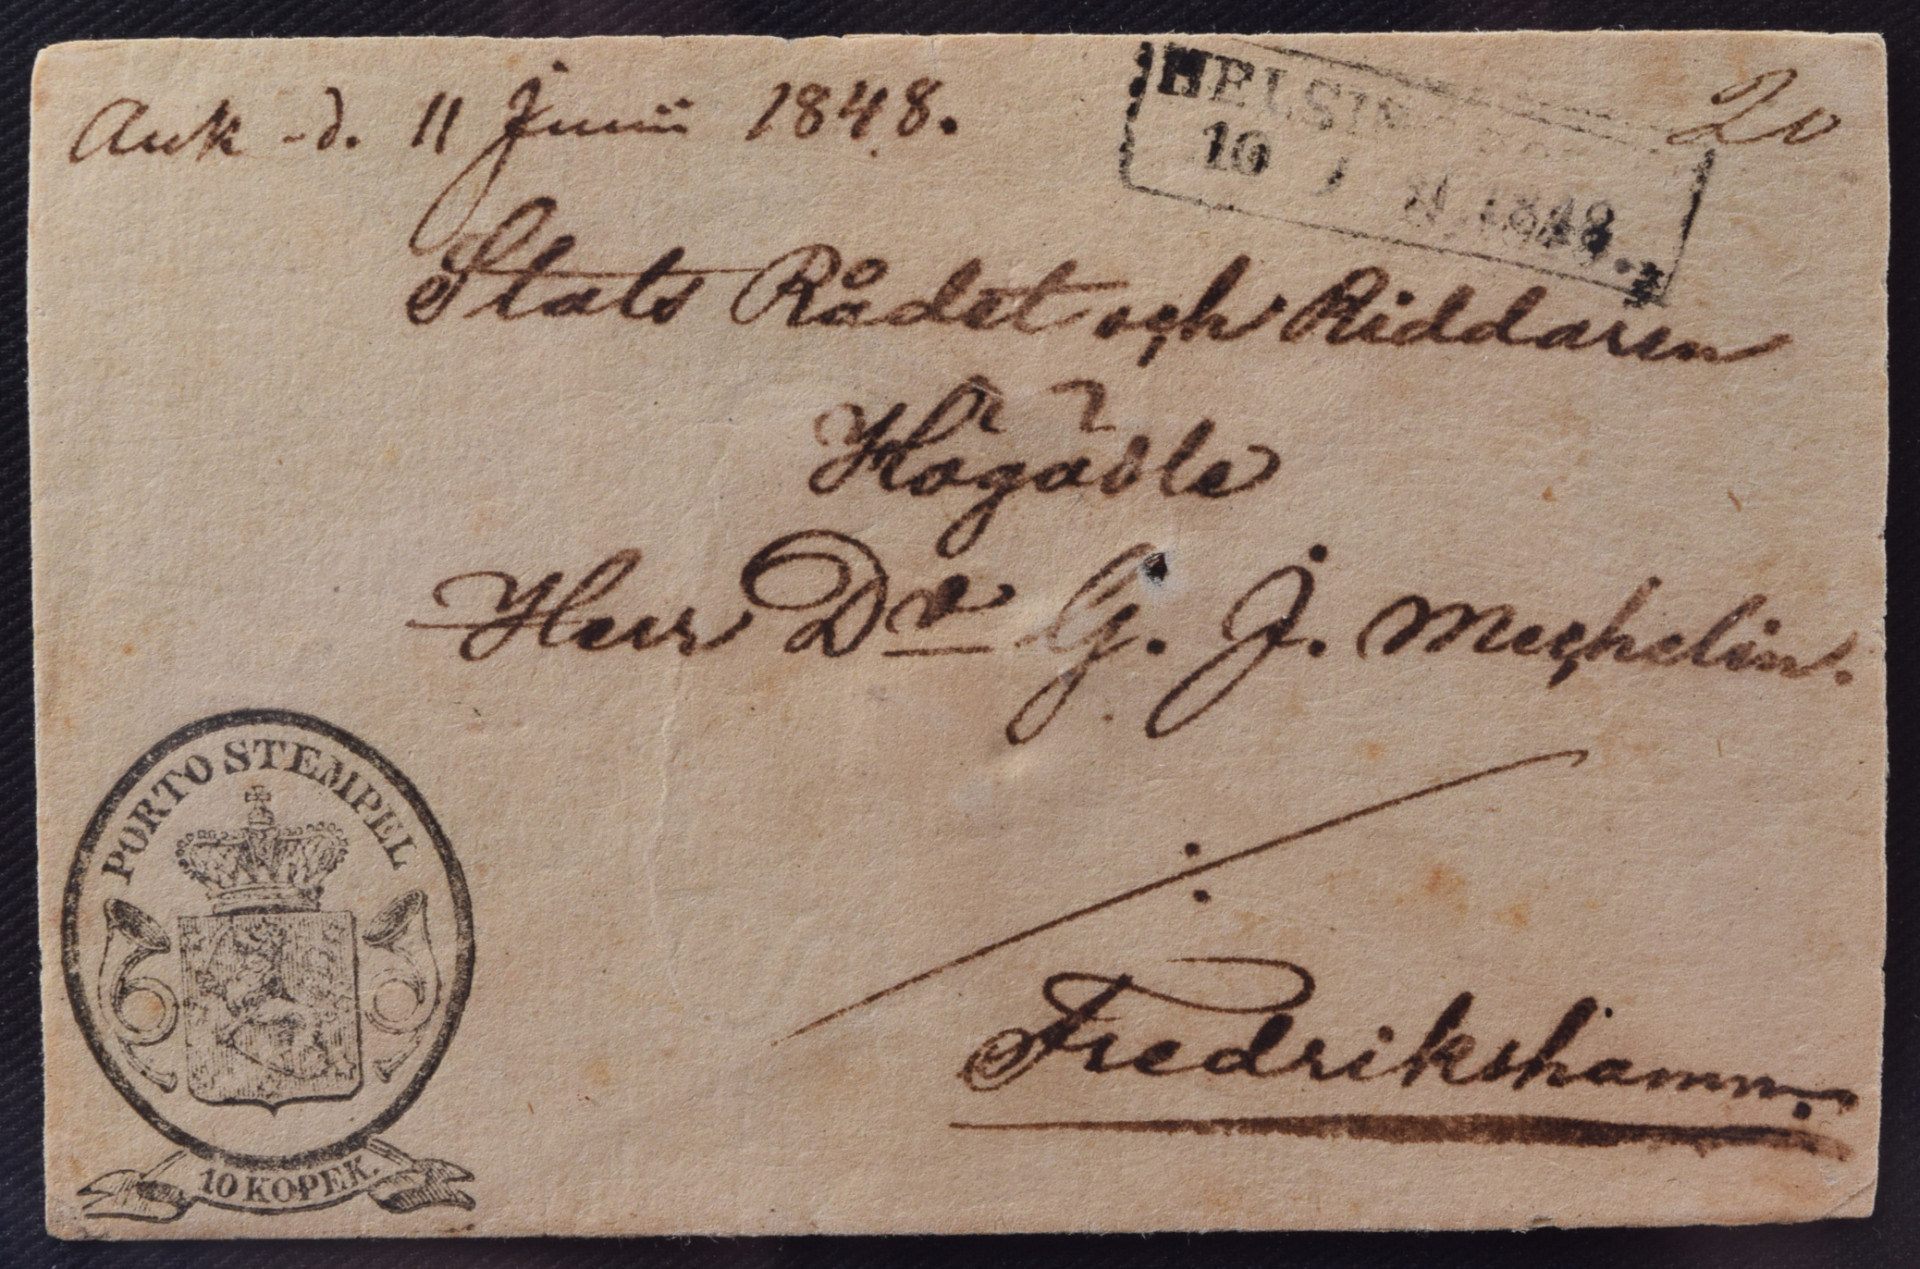 Ank d. 11 Junii 1848.
HELSINGFORS
10 1848.
20
Stats Rådet och Riddaren
Högädle
Herr Dr G. J. Mechelin.
Fredrikshamn.
PORTO STEMPEL
10 KOPEK.